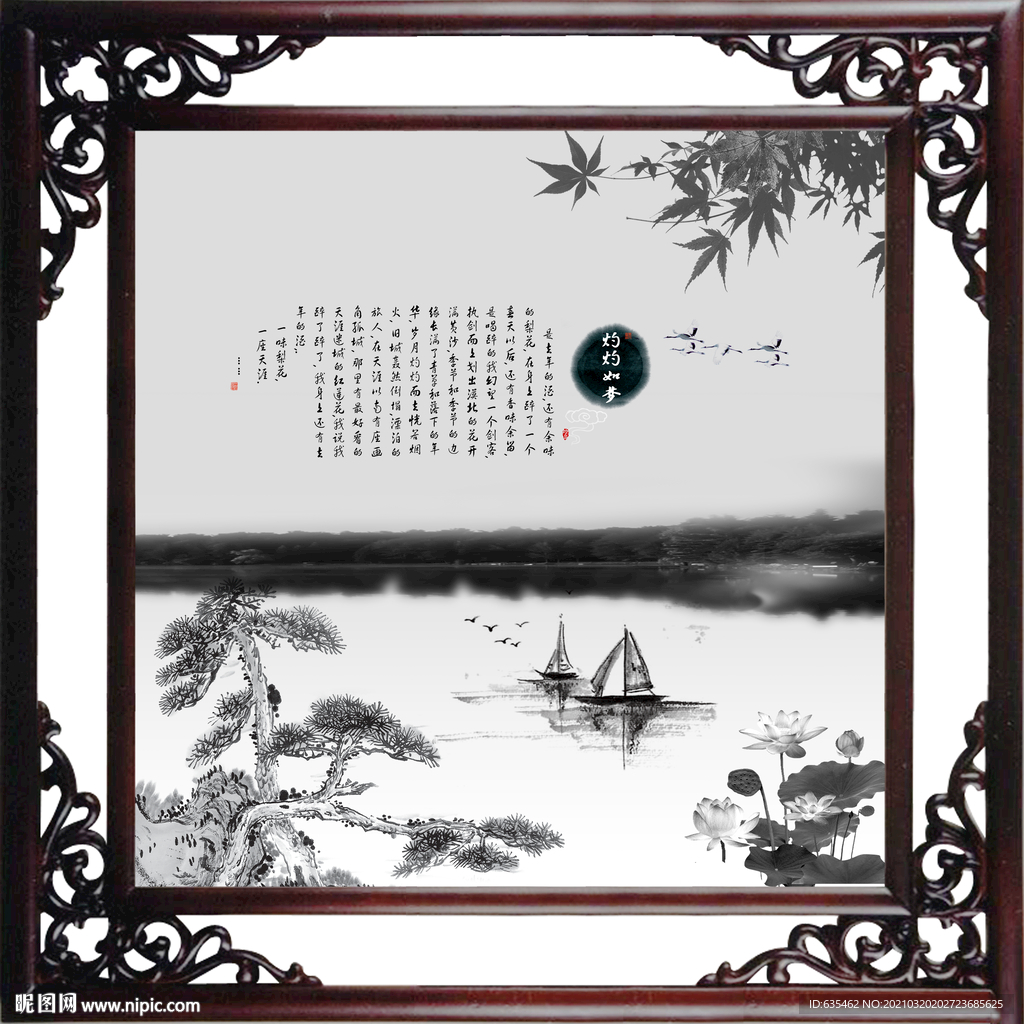 灼灼如梦
是去年的泪,还有余味
的梨花,在身上醉了一个
春天以后,还有香味余留,
是喝醉的我幻望一个剑客,
执剑而上划出漠北的花开
满黄沙,季节和季节的边
缘长满了青草和落下的年
华,岁月灼灼而去恍若烟
火,旧城轰然倒塌,漂泊的
旅人,在天涯以南有座画
角孤城,那里有最好看的
天涯迷城的红莲花,我说我
醉了醉了,我身上还有去
年的泪。
一味梨花,
一座天涯,
……
昵图网 www.nipic.com
ID:635462 NO:20210320202723685625